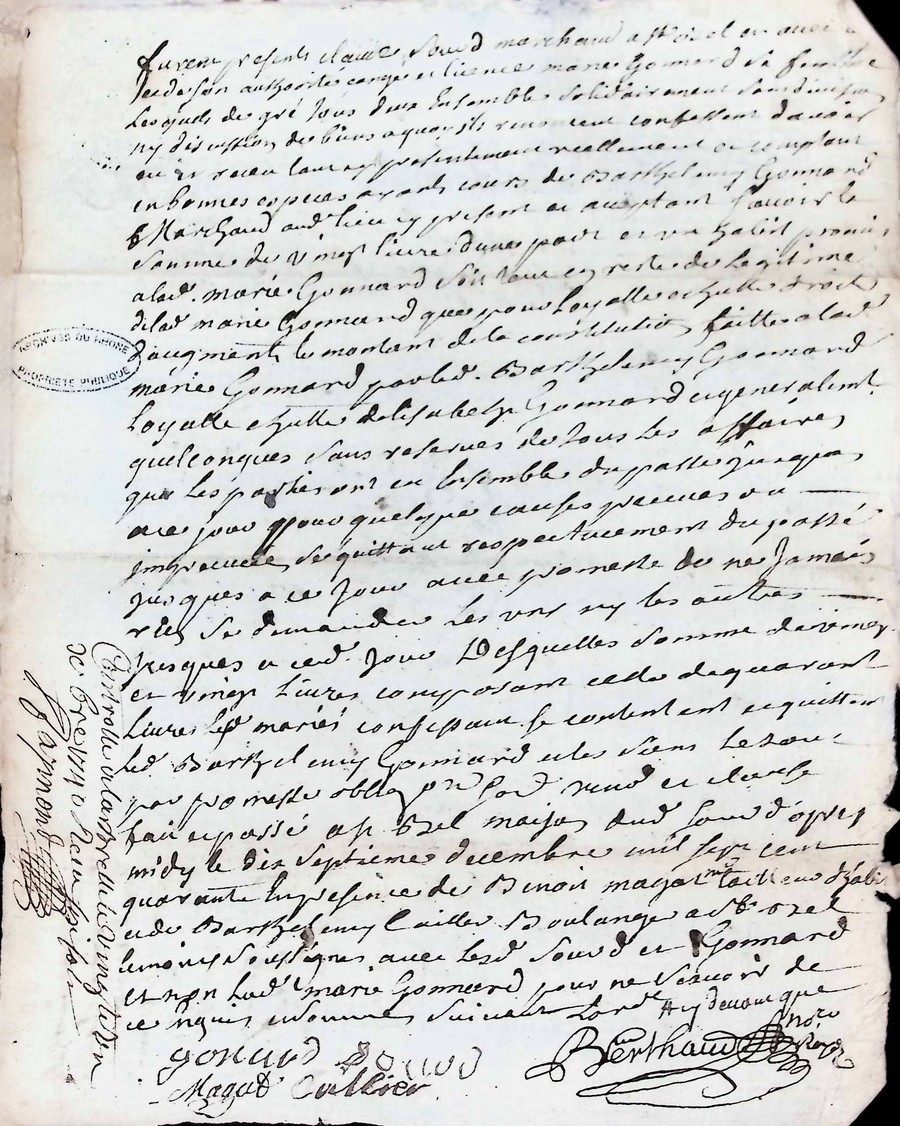 furent presents claude Sourd marchand a St ozel en avec
et de son authorité congé et licence marie Gonnard sa femme
Lesquels de gré tous deux Ensemble solidairement sans division
ny discution de biens a quoy ils renoncent confessent d'avoir
eu et receu tout presentement reellement et comptant
en bonnes especes ayants cours de Barthelemy Gonnard
Marchand aud. lieu cy present et acceptant scavoir la
somme de vingt livre d'une part et un habit promis
a lad. marie Gonnard soit pour reste de Legitime
de lad marie Gonnard que pour Loyalle echutte droit
d'augment le montant de la constitution faitte a lad
marie Gonnard par led. Barthelemy Gonnard
Loyalle echutte delisabeth Gonnard et generalemt
quelconques sans reserves de tous les affaires
que les parties ont eu Ensemble du passé jusques
a ce jour pour quelque causes preveues ou
impreveues se quittant respectivement du passé
jusques a ce jour avec promesse de ne jamais
rien se demander les uns ny les autres
jusques a ced. jour Desquelles somme de vingt
et vingt livres composant celle de quarant
livres les mariés confessent se contentent et quittent
led Barthelemy Gonnard et les siens
par promesse oblig on renond et clause
fait et passé a St ozel maison dud Sourd d'apres
midy le dix septieme decembre mil sept cent
quarante En presence de Benoit magot me tailleur d'habi
et de Barthelemy Caillier Boulanger a St ozel
temoins soussignes avec lesd Sourd et Gonnard
et non lad marie Gonnard pour ne scavoir de
ce enquis et sommé suivant Lord
gonard Sourd
Magot Callier
Berthaud
no.re
Royal
Controllé a larbrelle le vingt
xbre 1740 Receu
Raymond
ARCHIVES DU RHÔNE
PROPRIÉTÉ PUBLIQUE